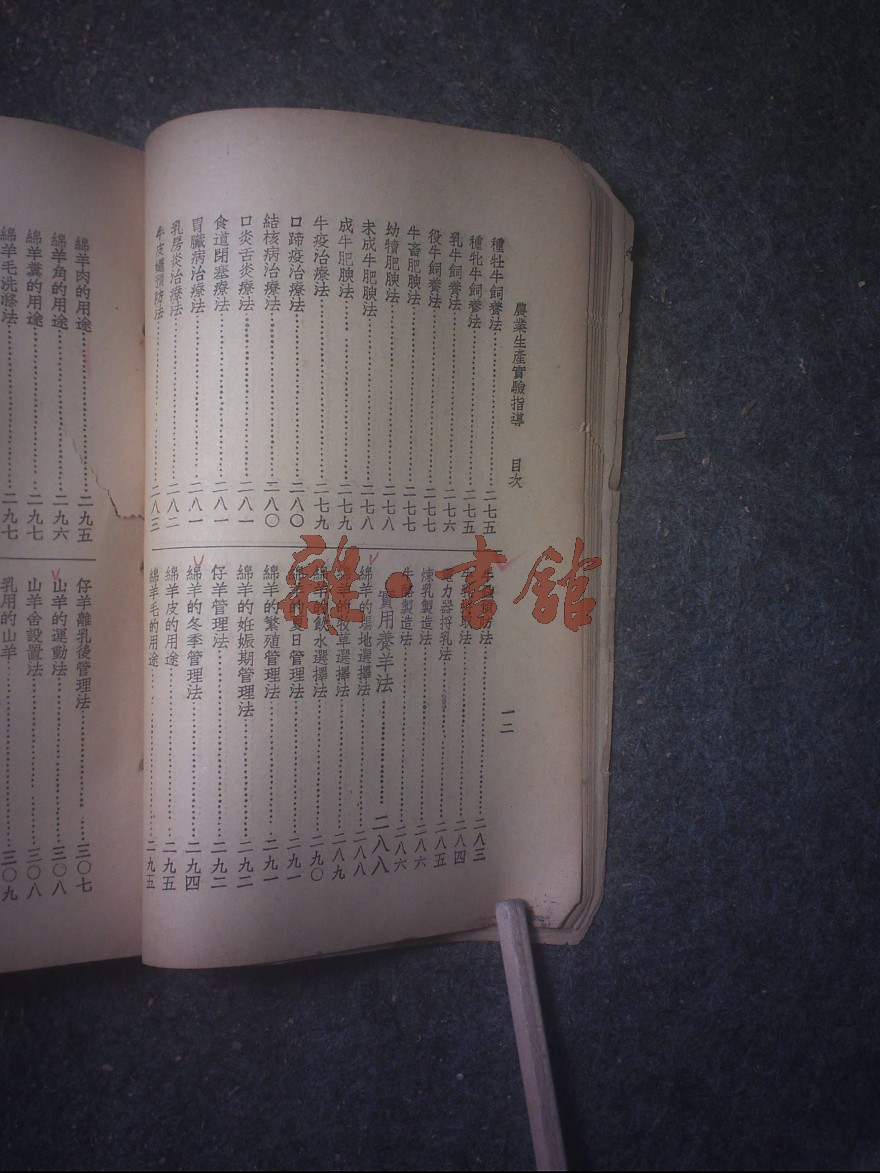 農業生產實驗指導 目次
一二
種牡牛飼養法 二七五
種牝牛飼養法 二七五
乳牛飼養法 二七六
役牛飼養法 二七七
牛畜肥腴法 二七七
幼犢肥腴法 二七八
未成牛肥腴法 二七八
成牛肥腴法 二七九
牛疫治療法 二七九
口蹄疫治療法 二八〇
結核病治療法 二八〇
口炎舌炎療法 二八一
食道閉塞療法 二八一
胃臟病治療法 二八一
乳房炎治療法 二八二
牛皮蠅預防法 二八三
防法 二八三
二八四
電力器搾乳法 二八五
煉乳製造法 二八六
牛酪製造法 二八六
實用養羊法 二八八
綿羊的場地選擇法 二八八
綿羊的牧草選擇法 二八九
綿羊的飲水選擇法 二九〇
綿羊的夏日管理法 二九一
綿羊的繁殖管理法 二九一
綿羊的妊娠期管理法 二九二
仔羊管理法 二九二
綿羊的冬季管理法 二九四
綿羊皮的用途 二九五
綿羊毛的用途 二九五
綿羊肉的用途 二九五
綿羊角的用途 二九六
綿羊糞的用途 二九七
綿羊毛洗滌法 二九七
仔羊離乳後管理法 三〇七
山羊的運動法 三〇八
山羊舍設置法 三〇八
乳用的山羊 三〇九
雜·書館